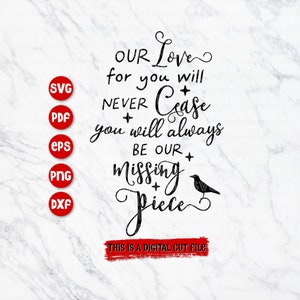 OUR Love
for you will
NEVER Cease
you will always
BE OUR
missing
Piece
SVG
PDF
eps
PNG
DXF
THIS IS A DIGITAL CUT FILE